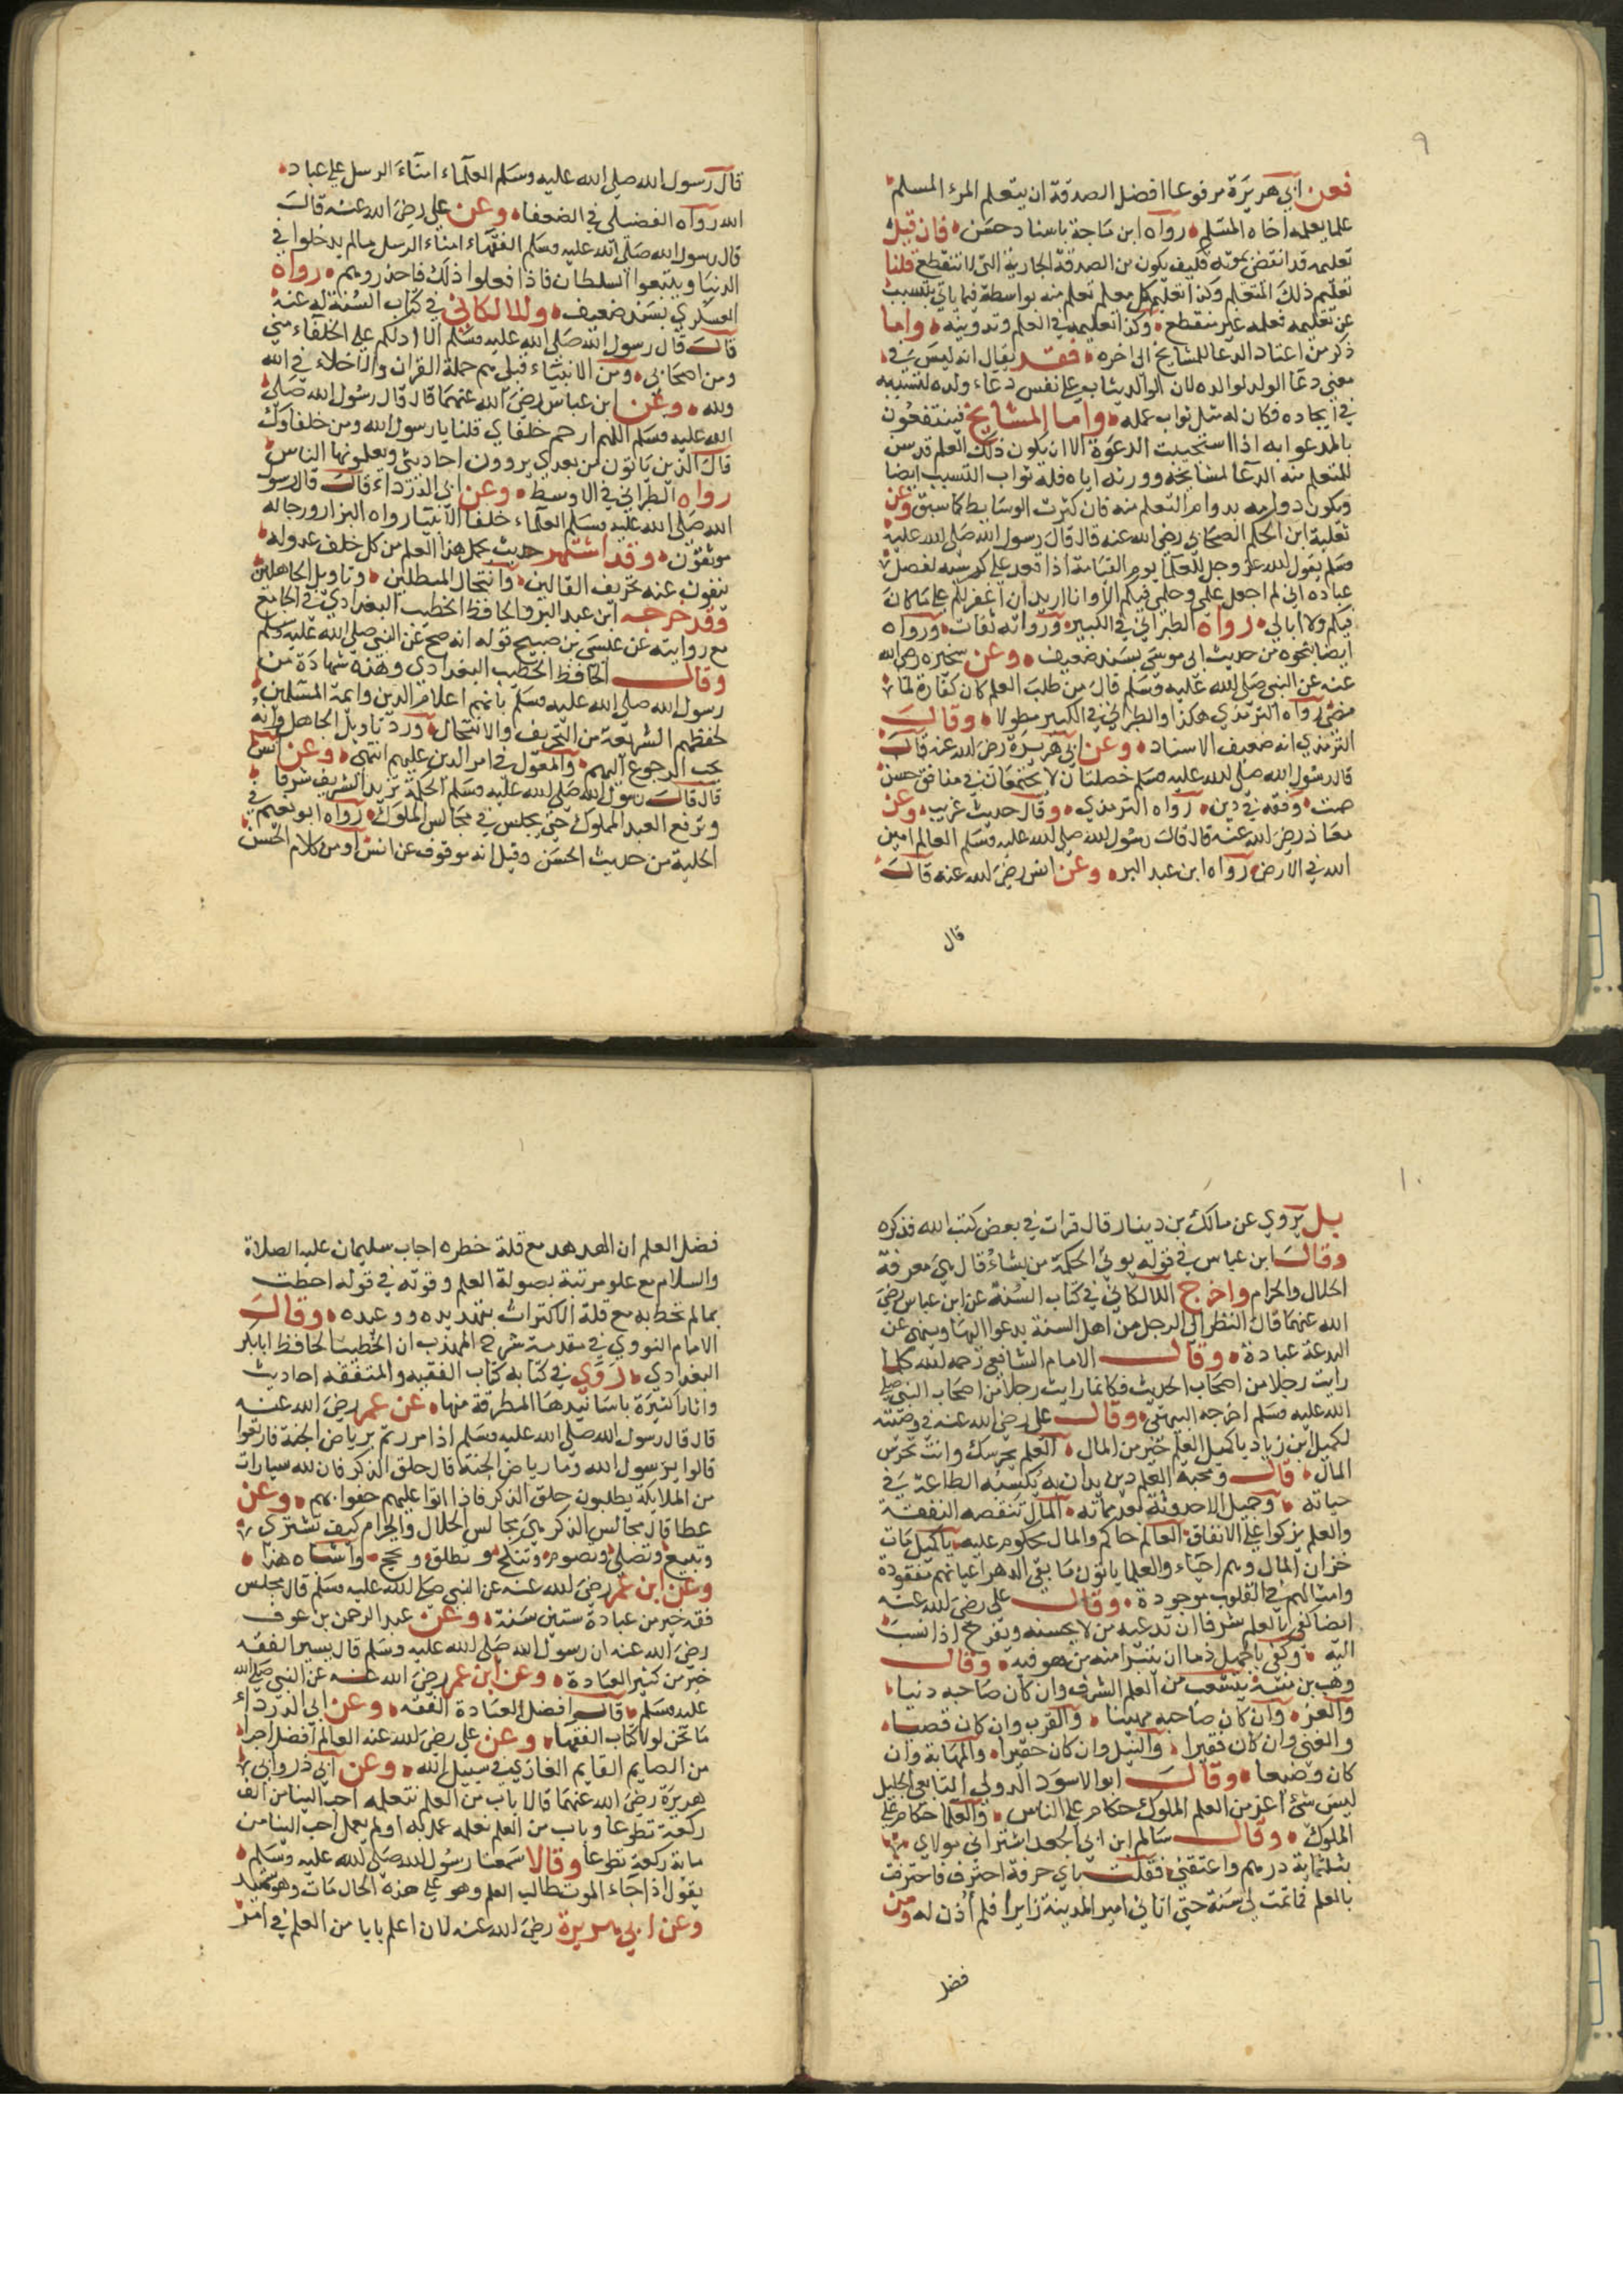 ٩
فعن ابي هريرة مرفوعا افضل الصدقة ان يتعلم المرء المسلم
علما يعلمه اخاه المسلم رواه ابن ماجة باسناد حسن فان قيل
تعليمه قد انقضى بموته فكيف يكون من الصدقة الجارية التي لا تنقطع قلنا
تعليم ذلك المتعلم وكذا تعليم كل معلم تعلم منه بواسطة فيما ياتي بتسبب
عن تعليمه فعلمه غير منقطع وكذا تعليمه في العلم وتدوينه واما
ذكر من اعتاد الدعا للمشايخ الى اخره فقد يقال انه ليس في
معنى دعا الولد لوالده لان الوالد يثاب على نفس دعاء ولده لتسببه
في ايجاده فكان له مثل ثواب عمله واما المشايخ فينتفعون
بالمدعو به اذا استجيبت الدعوة الا ان يكون ذلك العلم قد سن
للمتعلم منه الدعا لمشايخه وورثه اياه فله ثواب التسبب ايضا
ويكون دوامه بدوام التعلم منه فان كثرت الوسايط كما سبق وعن
ثعلبة ابن الحكم الصحابي رضي الله عنه قال قال رسول الله صلى الله عليه
وسلم يقول الله عز وجل للعلما يوم القيامة اذا قعد على كرسيه لفصل
عباده اني لم اجعل علمي وحلمي فيكم الا وانا اريد ان اغفر لكم على ما كان
فيكم ولا ابالي رواه الطبراني في الكبير ورواته ثقات ورواه
ايضا بنحوه من حديث ابي موسى بسند ضعيف وعن سخبره رضي الله
عنه عن النبي صلى الله عليه وسلم قال من طلب العلم كان كفارة لما
مضى رواه الترمذي هكذا والطبراني في الكبير مطولا وقالــ
الترمذي انه ضعيف الاسناد وعن ابي هريرة رضي الله عنه قالــ
قال رسول الله صلى الله عليه وسلم خصلتان لا يجتمعان في منافق حسن
صمت وفقه في دين رواه الترمذي وقال حديث غريب وعن
معاذ رضي الله عنه قال قال رسول الله صلى الله عليه وسلم العالم امين
الله في الارض رواه ابن عبد البر وعن انس رضي الله عنه قالــ
قال
قال رسول الله صلى الله عليه وسلم العلماء امناء الرسل على عباد
الله رواه في الضعفا وعن علي رضي الله عنه قالــ
قال رسول الله صلى الله عليه وسلم الفقهاء امناء الرسل ما لم يدخلوا في
الدنيا ويتبعوا السلطان فاذا فعلوا ذلك فاحذروهم رواه
العسكري بسند ضعيف وللالكائي في كتاب السنة له عنه
قالــ قال رسول الله صلى الله عليه وسلم الا ادلكم على الخلفاء مني
ومن اصحابي ومن الانبياء قبلي هم حملة القران والاخلاء في الله
ولله وعن ابن عباس رضي الله عنهما قال قال رسول الله صلى
الله عليه وسلم اللهم ارحم خلفاي قلنا يا رسول الله ومن خلفاوك
قال الذين ياتون من بعدي يروون احاديثي ويعلمونها الناس
رواه الطبراني في الاوسط وعن ابي الدرداء قالــ قال رسول
الله صلى الله عليه وسلم العلماء خلفا الانبيا رواه البزار ورجاله
موثقون وقد اشتهر حديث يحمل هذا العلم من كل خلف عدوله
ينفون عنه تحريف الغالين وانتحال المبطلين وتاويل الجاهلين
وقد خرجه ابن عبد البر والحافظ الخطيب البغدادي في الجامع
مع روايته عن عيسى بن صبيح قوله انه صح عن النبي صلى الله عليه وسلم
وقالــ الحافظ الخطيب البغدادي وهذه شهادة من
رسول الله صلى الله عليه وسلم بانهم اعلام الدين وايمة المسلمين
لحفظهم الشريعة من التحريف والانتحال ورد تاويل الجاهل وانه
يجب الرجوع اليهم والمعول في امر الدين عليهم انتهى وعن انس
قال قالــ رسول الله صلى الله عليه وسلم الحكمة تزيد الشريف شرفا
وترفع العبد المملوك حتى يجلس في مجالس الملوك رواه ابو نعيم في
الحلية من حديث الحسن وقيل انه موقوف عن انس او من كلام الحسن
١٠
بل يروي عن مالك بن دينار قال قرات في بعض كتب الله فذكره
وقالــ ابن عباس في قوله يوتي الحكمة من يشاء قال هي معرفة
الحلال والحرام واخرج اللالكائي في كتاب السنة عن ابن عباس رضي
الله عنهما قال النظر الى الرجل من اهل السنة يدعوا اليها وينهى عن
البدعة عبادة وقالــ الامام الشافعي رحمه الله كلما
رايت رجلا من اصحاب الحديث فكانما رايت رجلا من اصحاب النبي صلى
الله عليه وسلم اخرجه البيهقي وقالــ علي رضي الله عنه في وصيته
لكميل ابن زياد يا كميل العلم خير من المال العلم يحرسك وانت تحرس
المال قالــ ومحبة العلم دين يدان به يكسبه الطاعة في
حياته وجميل الاحدوثة بعد مماته المال تنقصه النفقة
والعلم يزكوا على الانفاق العالم حاكم والمال محكوم عليه يا كميل مات
خزان المال وهم احياء والعلما ياتون ما بقي الدهر اعيانهم مفقودة
وامثالهم في القلوب موجودة وقالــ علي رضي الله عنه
ايضا كفى بالعلم شرفا ان يدعيه من لا يحسنه ويفرح اذا نسب
اليه وكفى بالجهل ذما ان يتبرا منه من هو فيه وقالــ
وهب بن منبه يتشعب من العلم الشرف وان كان صاحبه دنيا
والعز وان كان صاحبه مهينا والقرب وان كان قصيا
والغنى وان كان فقيرا والنبل وان كان حقيرا والمهابة وان
كان وضيعا وقالــ ابو الاسود الدولي التابعي الجليل
ليس شيء اعز من العلم الملوك حكام على الناس والعلما حكام على
الملوك وقالــ سالم ابن ابي الجعد اشتراني مولاي
بثلثماية درهم واعتقني فقلت باي حرفة احترف فاحترفت
بالعلم فما تمت لي سنة حتى اتاني امير المدينة زايرا فلم اذن له ومن
فضل
فضل العلم ان الهدهد مع قلة خطره اجاب سليمان عليه الصلاة
والسلام مع علو مرتبته بصولة العلم وقوته في قوله احطت
بما لم تحط به مع قلة الاكتراث بتهديده ووعيده وقالــ
الامام النووي في مقدمة شرح المهذب ان الخطيب الحافظ ابا بكر
البغدادي روى في كتابه كتاب الفقيه والمتفقه احاديث
واثارا كثيرة باسانيدها المطرقة منها عن عمر رضي الله عنه
قال قال رسول الله صلى الله عليه وسلم اذا مررتم برياض الجنة فارتعوا
قالوا يرسول الله وما رياض الجنة قال حلق الذكر فان لله سيارات
من الملايكة يطلبون حلق الذكر فاذا اتوا عليهم حفوا بهم وعن
عطا قال مجالس الذكر هي مجالس الحلال والحرام كيف تشتري
وتبيع وتصلي وتصوم وتنكح وتطلق وتحج واشباه هذا
وعن ابن عمر رضي الله عنه عن النبي صلى الله عليه وسلم قال مجلس
فقه خير من عبادة ستين سنة وعن عبد الرحمن بن عوف
رضي الله عنه ان رسول الله صلى الله عليه وسلم قال يسير الفقه
خير من كثير العبادة وعن ابن عمر رضي الله عنه عن النبي صلى الله
عليه وسلم قالــ افضل العبادة الفقه وعن ابي الدرداء
ما نحن لولا كتاب الفقها وعن علي رضي الله عنه العالم افضل اجرا
من الصايم القايم الغازي في سبيل الله وعن ابي ذر وابي
هريرة رضي الله عنهما قالا باب من العلم نتعلمه احب الينا من الف
ركعة تطوعا وباب من العلم نعلمه عمل به او لم يعمل احب الينا من
ماية ركعة تطوعا وقالا سمعنا رسول الله صلى الله عليه وسلم
يقول اذا جاء الموت طالب العلم وهو على هذه الحال مات وهو شهيد
وعن ابي هريرة رضي الله عنه لان اعلم بابا من العلم في امر